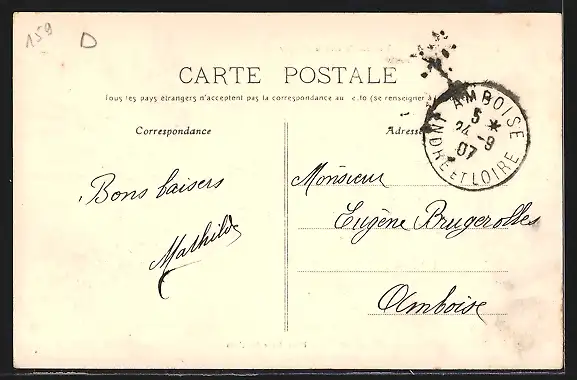 159
D
CARTE POSTALE
Tous les pays étrangers n'acceptent pas la correspondance au (se renseigner à
Correspondance
Adresse
AMBOISE
5 *
24 -9
07
INDRE ET LOIRE
Bons baisers
Mathilde
Monsieur
Eugène Brugerolles
Amboise